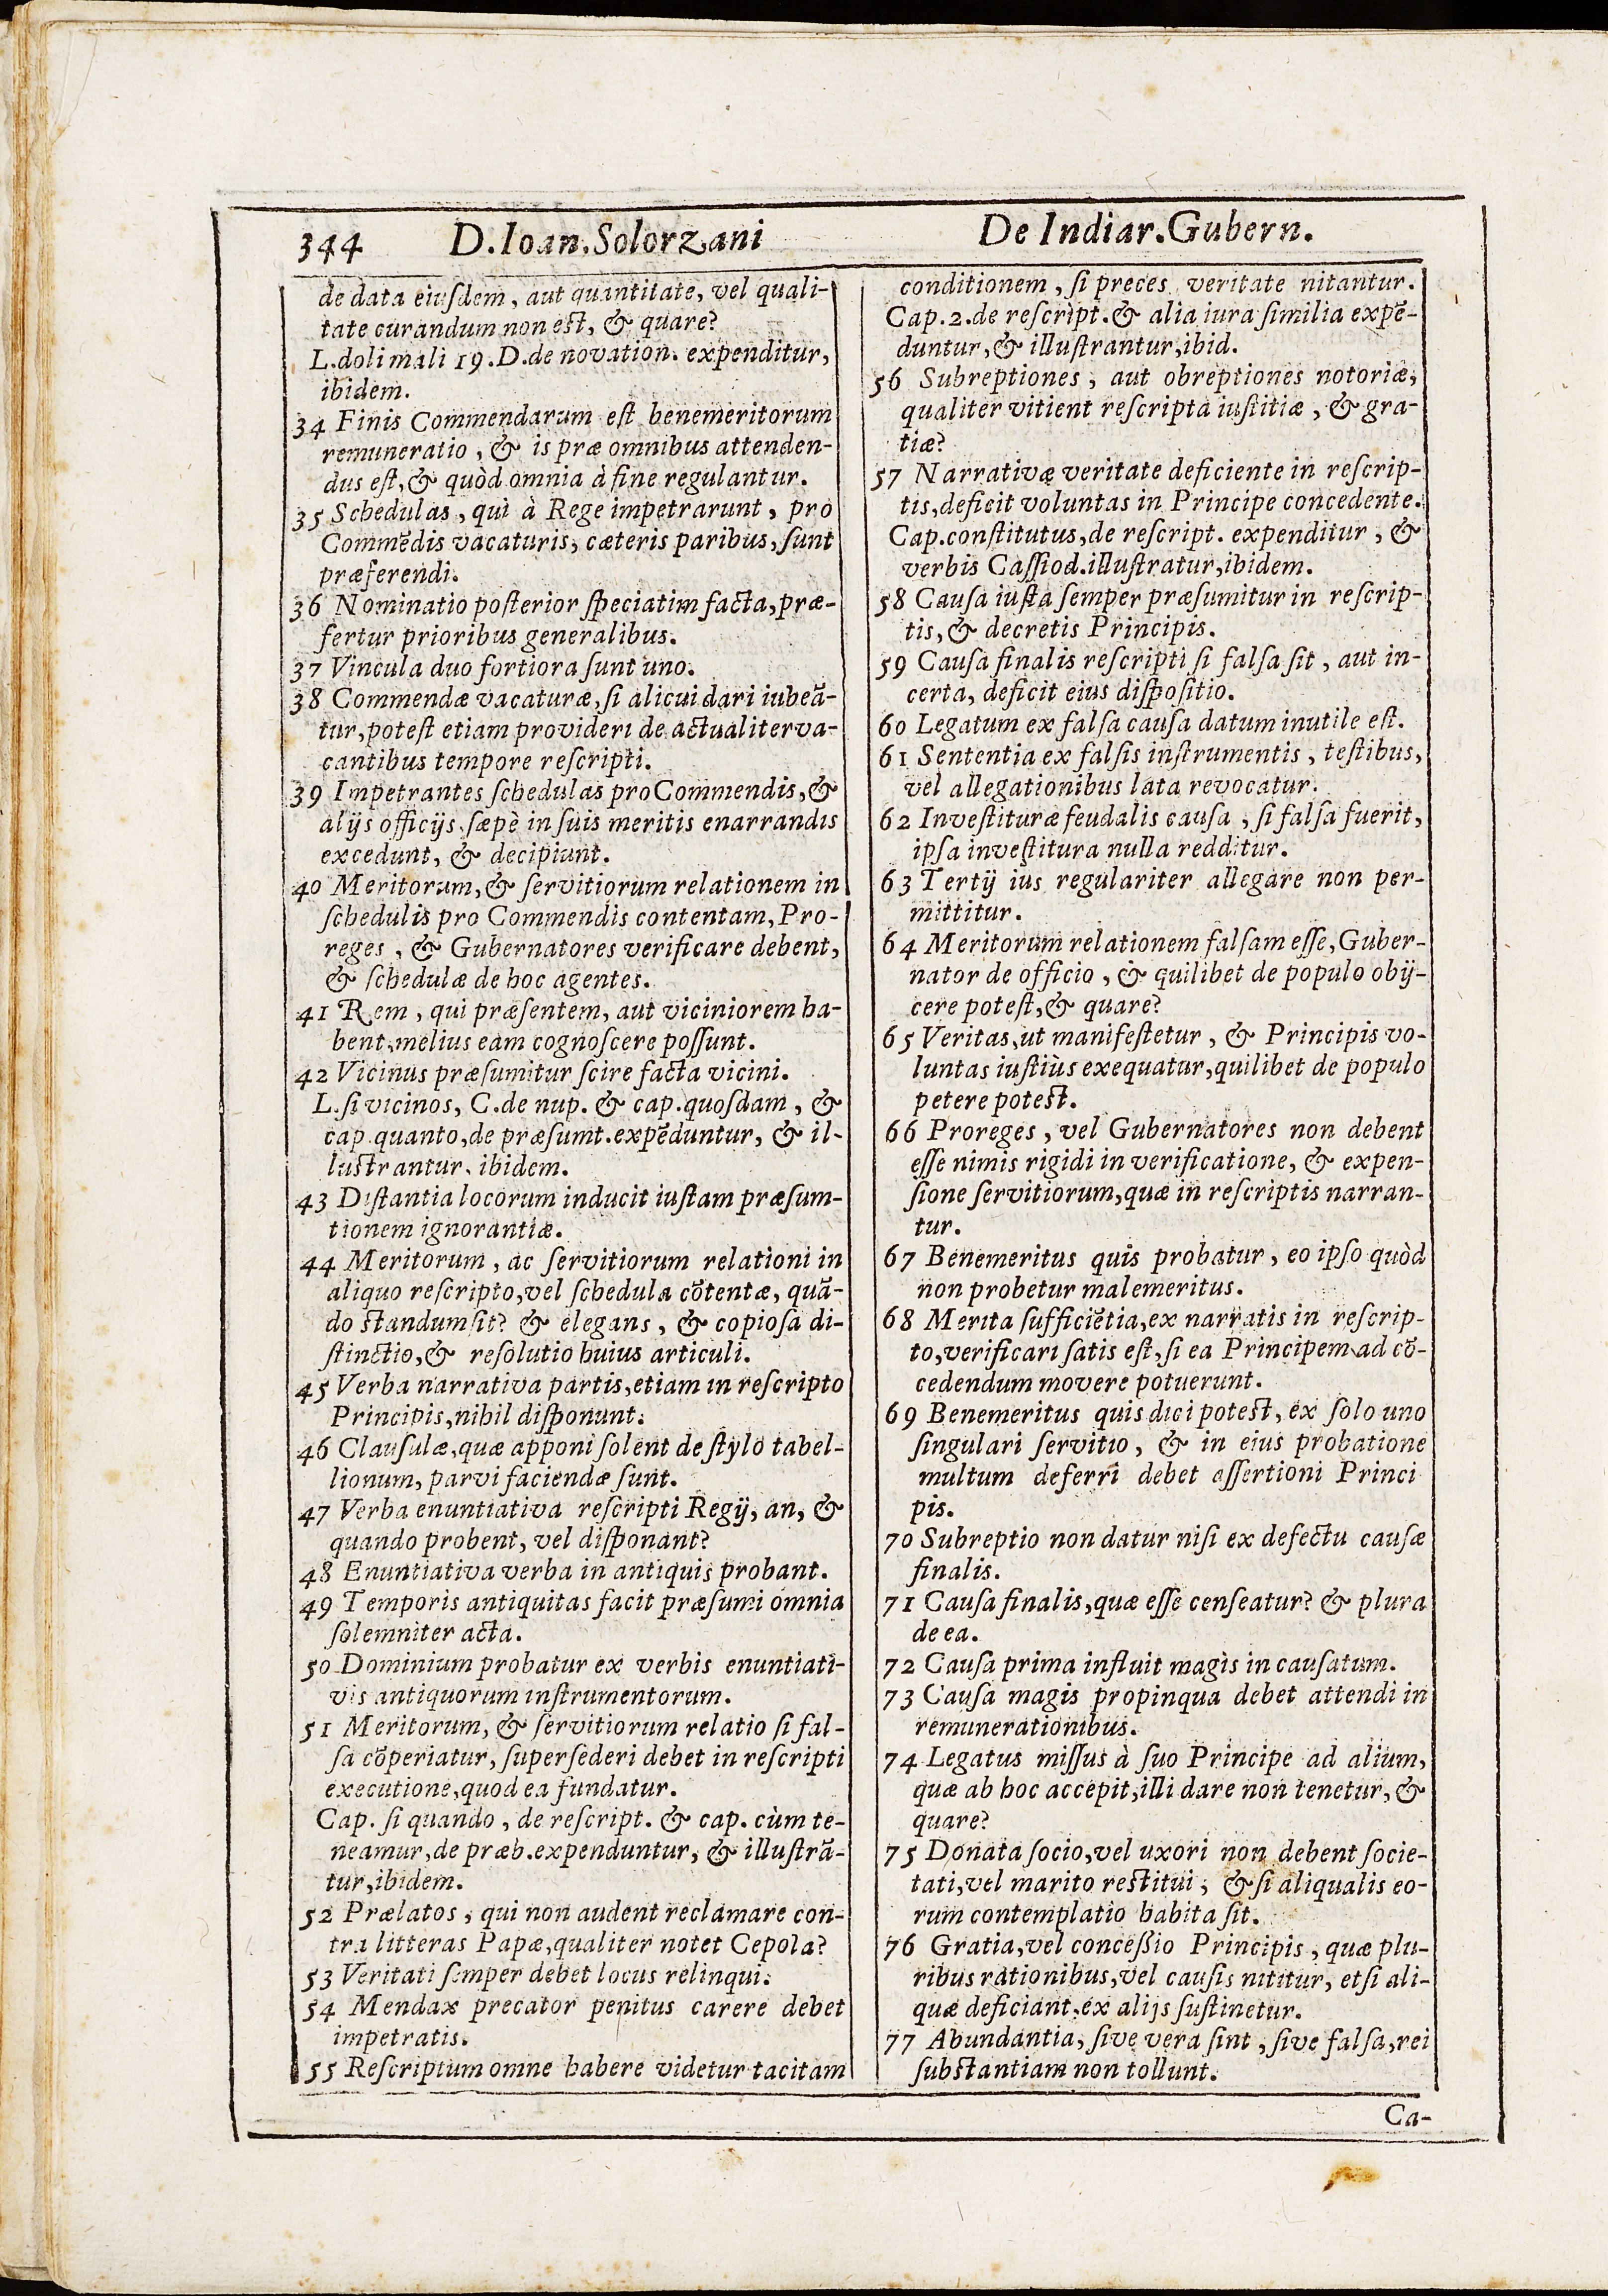 344 D. Ioan. Solorzani
De Indiar. Gubern.
de data eiuſdem, aut quantitate, vel quali-
tate curandum non eſt, & quare?
L. doli mali 19. D. de novation. expenditur,
ibidem.
34 Finis Commendarum eſt benemeritorum
remuneratio, & is præ omnibus attenden-
dus eſt, & quòd omnia à fine regulantur.
35 Schedulas, qui à Rege impetrarunt, pro
Commẽdis vacaturis, cæteris paribus, ſunt
præferendi.
36 Nominatio poſterior ſpeciatim facta, præ-
fertur prioribus generalibus.
37 Vincula duo fortiora ſunt uno.
38 Commendæ vacaturæ, ſi alicui dari iubeã-
tur, poteſt etiam provideri de actualiter va-
cantibus tempore reſcripti.
39 Impetrantes ſchedulas pro Commendis, &
alijs officijs, ſæpè in ſuis meritis enarrandis
excedunt, & decipiunt.
40 Meritorum, & ſervitiorum relationem in
ſchedulis pro Commendis contentam, Pro-
reges, & Gubernatores verificare debent,
& ſchedulæ de hoc agentes.
41 Rem, qui præſentem, aut viciniorem ha-
bent, melius eam cognoſcere poſſunt.
42 Vicinus præſumitur ſcire facta vicini.
L. ſi vicinos, C. de nup. & cap. quoſdam, &
cap. quanto, de præſumt. expẽduntur, & il-
luſtrantur, ibidem.
43 Diſtantia locorum inducit iuſtam præſum-
tionem ignorantiæ.
44 Meritorum, ac ſervitiorum relationi in
aliquo reſcripto, vel ſchedula cõtentæ, quã-
do ſtandum ſit? & elegans, & copioſa di-
ſtinctio, & reſolutio huius articuli.
45 Verba narrativa partis, etiam in reſcripto
Principis, nihil diſponunt.
46 Clauſulæ, quæ apponi ſolent de ſtylo tabel-
lionum, parvi faciendæ ſunt.
47 Verba enuntiativa reſcripti Regij, an, &
quando probent, vel diſponant?
48 Enuntiativa verba in antiquis probant.
49 Temporis antiquitas facit præſumi omnia
ſolemniter acta.
50 Dominium probatur ex verbis enuntiati-
vis antiquorum inſtrumentorum.
51 Meritorum, & ſervitiorum relatio ſi fal-
ſa cõperiatur, ſuperſederi debet in reſcripti
executione, quod ea fundatur.
Cap. ſi quando, de reſcript. & cap. cùm te-
neamur, de præb. expenduntur, & illuſtrã-
tur, ibidem.
52 Prælatos, qui non audent reclamare con-
tra litteras Papæ, qualiter notet Cepola?
53 Veritati ſemper debet locus relinqui.
54 Mendax precator penitus carere debet
impetratis.
55 Reſcriptum omne habere videtur tacitam
conditionem, ſi preces veritate nitantur.
Cap. 2. de reſcript. & alia iura ſimilia expẽ-
duntur, & illuſtrantur, ibid.
56 Subreptiones, aut obreptiones notoriæ,
qualiter vitient reſcripta iuſtitiæ, & gra-
tiæ?
57 Narrativæ veritate deficiente in reſcrip-
tis, deficit voluntas in Principe concedente.
Cap. conſtitutus, de reſcript. expenditur, &
verbis Caſſiod. illuſtratur, ibidem.
58 Cauſa iuſta ſemper præſumitur in reſcrip-
tis, & decretis Principis.
59 Cauſa finalis reſcripti ſi falſa ſit, aut in-
certa, deficit eius diſpoſitio.
60 Legatum ex falſa cauſa datum inutile eſt.
61 Sententia ex falſis inſtrumentis, teſtibus,
vel allegationibus lata revocatur.
62 Inveſtituræ feudalis cauſa, ſi falſa fuerit,
ipſa inveſtitura nulla redditur.
63 Tertij ius regulariter allegare non per-
mittitur.
64 Meritorum relationem falſam eſſe, Guber-
nator de officio, & quilibet de populo obij-
cere poteſt, & quare?
65 Veritas, ut manifeſtetur, & Principis vo-
luntas iuſtiùs exequatur, quilibet de populo
petere poteſt.
66 Proreges, vel Gubernatores non debent
eſſe nimis rigidi in verificatione, & expen-
ſione ſervitiorum, quæ in reſcriptis narran-
tur.
67 Benemeritus quis probatur, eo ipſo quòd
non probetur malemeritus.
68 Merita ſufficiẽtia, ex narratis in reſcrip-
to, verificari ſatis eſt, ſi ea Principem ad cõ-
cedendum movere potuerunt.
69 Benemeritus quis dici poteſt, ex ſolo uno
ſingulari ſervitio, & in eius probatione
multum deferri debet aſſertioni Princi
pis.
70 Subreptio non datur niſi ex defectu cauſæ
finalis.
71 Cauſa finalis, quæ eſſe cenſeatur? & plura
de ea.
72 Cauſa prima influit magis in cauſatum.
73 Cauſa magis propinqua debet attendi in
remunerationibus.
74 Legatus miſſus à ſuo Principe ad alium,
quæ ab hoc accepit, illi dare non tenetur, &
quare?
75 Donata ſocio, vel uxori non debent ſocie-
tati, vel marito reſtitui, & ſi aliqualis eo-
rum contemplatio habita ſit.
76 Gratia, vel conceßio Principis, quæ plu-
ribus rationibus, vel cauſis nititur, etſi ali-
quæ deficiant, ex alijs ſuſtinetur.
77 Abundantia, ſive vera ſint, ſive falſa, rei
ſubſtantiam non tollunt.
Ca-